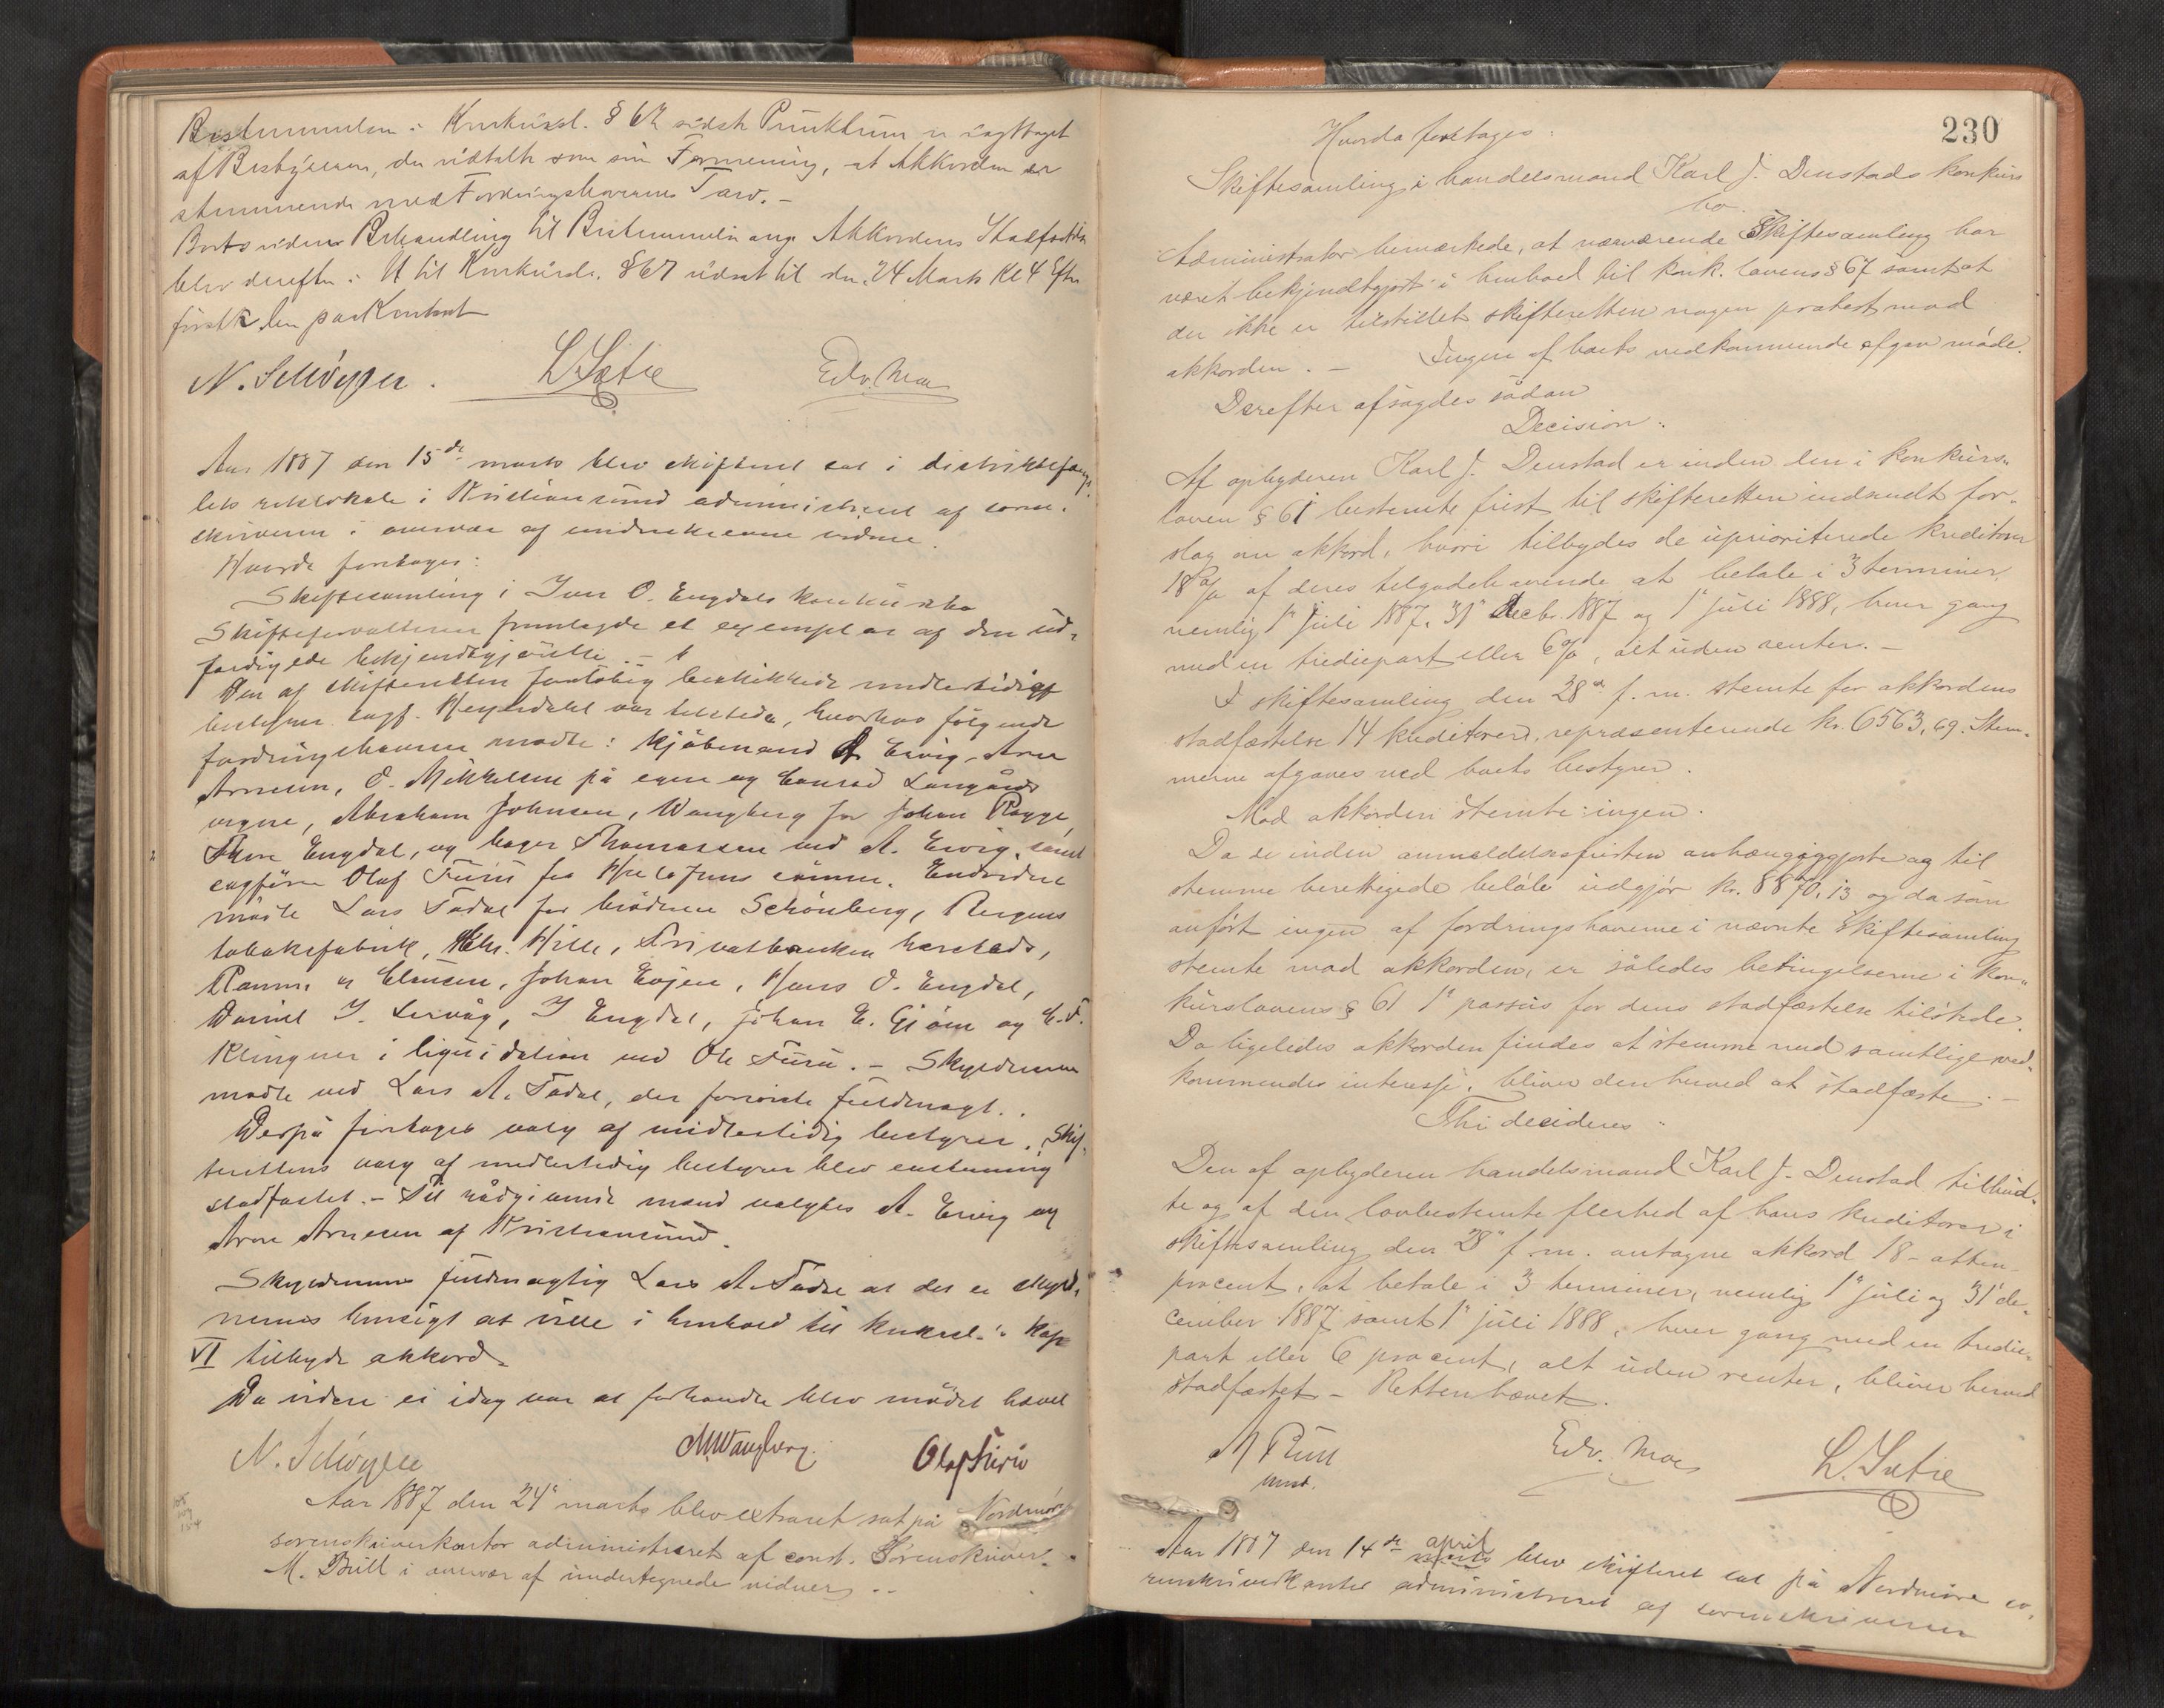 Bestemmelsen i Konkursl. § 67 sidste Punktum er iagttaget
af Bestyreren, der udtalte som sin Formening, at Akkorden er
stemmende med Fordringshavernes Tarv. –
Boets videre Behandling til Bestemmelse ang. Akkordens Stadfæstelse
blev derefter i H. til Konkursl. § 67 udsat til den 24 Marts Kl 4 Eftm
førstk. her paa Kontoret
N. Selbøger . L. Sætre Edv. Moe
Aar 1887 den 15de marts blev skifteret sat i distriktsfængs-
lets retslokale i Kristiansund administreret af soren-
skriveren i overvær af undertegnede vidner.
Hvorda foretages:
Skiftesamling i Iver O. Engdals konkursbo
Skifteforvalteren fremlagde et exemplar af den ud-
færdigede bekjendtgjørelse. –
Den af skifteretten foreløbig beskikkede midlertidige
bestyrer sagf. Heyerdahl var tilstede, hvorhos følgende
fordringshavere mødte: kjøbmand A. Ervig, Arne
Arnesen, O. Mikkelsen på egne og Conrad Langårds
vegne, Abraham Johnsen, Wangberg for Johan Rogge,
Engdal, og bager Thomassen ved A. Ervig, samt
sagfører Olaf Furu for sønner. Endvidere
mødte Lars Todal for brødrene Schönberg, Bergens
tobaksfabrik, Hille, Privatbanken hersteds,
Ramm & Clausen, Johan Eojen, Hans O. Engdal,
Daniel J. Lervåg, J Engdal, Johan E. Gjöm og E. F.
Klingner i liquidation ved Ole Furu. – Skyldneren
mødte ved Lars A. Todal, der foreviste fuldmagt.
Derpå foretages valg af midlertidig bestyrer. Skif-
terettens valg af midlertidig bestyrer blev enstemmig
stadfæstet. – Til rådgivende mænd valgtes A. Ervig og
Arne Arnesen af Kristiansund.
Skyldnerens fuldmægtig Lars A. Todal at det er skyld-
nerens hensigt at ville i henhold til konkursl.'s Kap
VI tilbyde akkord.
Da videre ei idag var at forhandle blev mødet hævet
N. Selbøger M Wangberg. Olaf Furu
Aar 1887 den 24e marts blev extraret sat på Nordmør
sorenskriverkontor administreret af const. Sorenskriver
M. Bull i overvær af undertegnede vidner. –
230
Hvorda foretages:
Skiftesamling i handelsmand Karl J. Denstads konkurs
bo.
Administrator bemærkede, at nærværende Skiftesamling har
været bekjendtgjort i henhold til konk. lovens § 67 samt at
der ikke er tilstillet skifteretten nogen protest mod
akkorden. – Ingen af boets vedkommende afgav møde.
Derefter afsagdes sådan
Decision:
Af opbyderen Karl J. Denstad er inden den i konkurs-
loven § 61 bestemte frist til skifteretten indsendt for-
slag om akkord, hvori tilbydes de uprioriterede kreditorer
18% af deres tilgodehavende at betale i 3 terminer,
nemlig 1e juli 1887, 31e decbr. 1887 og 1e juli 1888, hver gang
med en trediepart eller 6%, alt uden renter. –
I skiftesamling den 28de f. m. stemte for akkordens
stadfæstelse 14 kreditorer, repræsenterende kr. 6563,69. Stem-
merne afgaves ved boets bestyrer.
Mod akkorden stemte ingen.
Da de inden anmeldelsesfristen anhængiggjorte og til
stemme berettigede beløb udgjør kr. 8870,13 og da som
anført ingen af fordringshaverne i nævnte skiftesamling
stemte mod akkorden, er således betingelserne i kon-
kurslovens § 61 1e passus for dens stadfæstelse tilstede.
Da ligeledes akkorden findes at stemme med samtlige ved-
kommendes interesse, bliver den herved at stadfæste. –
Thi decideres:
Den af opbyderen handelsmand Karl J. Denstad tilbud-
te og af den lovbestemte flerhed af hans kreditorer i
skiftesamling den 28e f. m. antagne akkord 18 – atten –
procent, at betale i 3 terminer, nemlig 1e juli og 31e de-
cember 1887 samt 1e juli 1888, hver gang med en tredie-
part eller 6 procent, alt uden renter, bliver herved
stadfæstet. – Retten hævet.
M Bull Edv. Moe L. Sætre
const.
Aar 1887 den 14de april blev skifteret sat på Nordmøre so-
renskriverkontor administreret af sorenskriveren